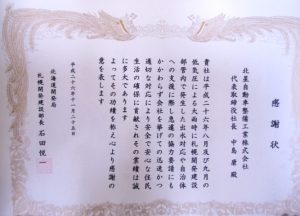 感謝状
北星自動車整備工業株式会社
代表取締役社長 中島 康 殿
貴社は平成二十六年八月及び九月の
低気圧による大雨時に札幌開発建設
部管内で発生した出水対応や自治体
への支援に際し急遽の協力要請にも
かかわらず会社を挙げての迅速かつ
適切な対応により安全で安心な住民
生活の確保に貢献されその業績は誠
に多大であります
よってその功績を称え心より感謝の
意を表します
平成二十六年十一月二十五日
北海道開発局
札幌開発建設部長 石田悦一